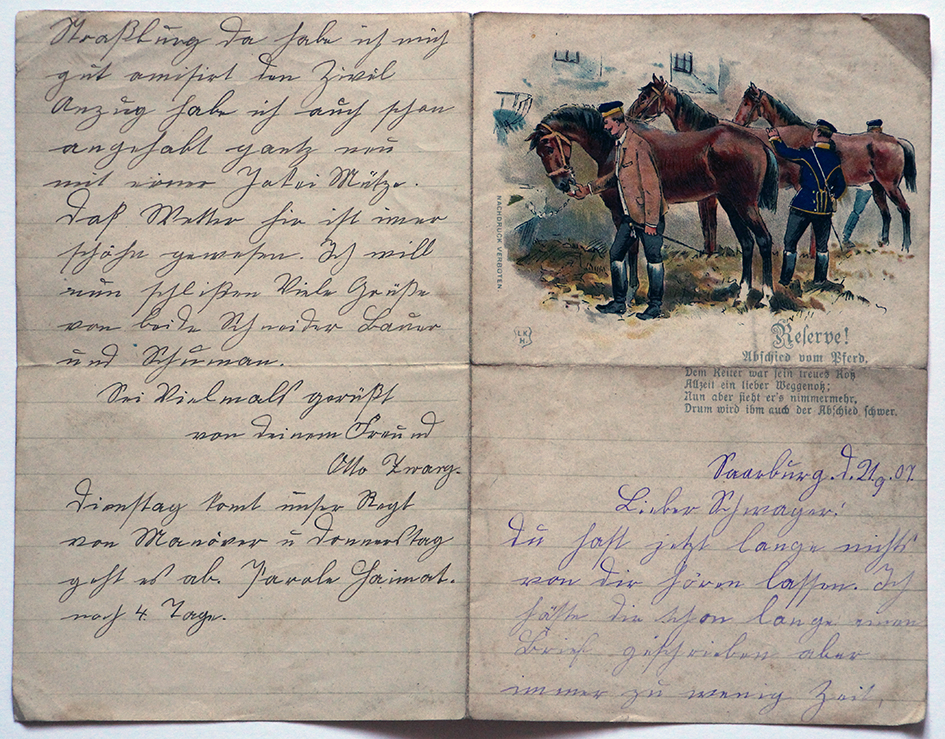 Straßburg da habe ich mich
gut amisirt den Zivil
Anzug habe ich auch schon
angehabt gantz neu
mit einer Jokei Mütze.
Daß Wetter hir ist imer
schöhn gewesen. Ich will
nun schlißen Viele Grüße
von beide Schneider Bauer
und Schuman.
Sei Vielmals gerüßt
von deinem Freund
Otto Zwarg.
Dienstag komt unser Regt
von Manöver u Donnerstag
geht es ab. Parole Haimat.
noch 4. Tage.
NACHDRUCK VERBOTEN.
Reserve!
Abschied vom Pferd.
Dem Reiter war sein treues Roß
Allzeit ein lieber Weggenoß;
Nun aber sieht er's nimmermehr,
Drum wird ihm auch der Abschied schwer.
Saarburg. d. 21/9. 07.
Lieber Schwager!
Du hast jetzt lange nichts
von dir hören lassen. Ich
hätte dir schon lange einen
Brief geschrieben aber
immer zu wenig Zeit,